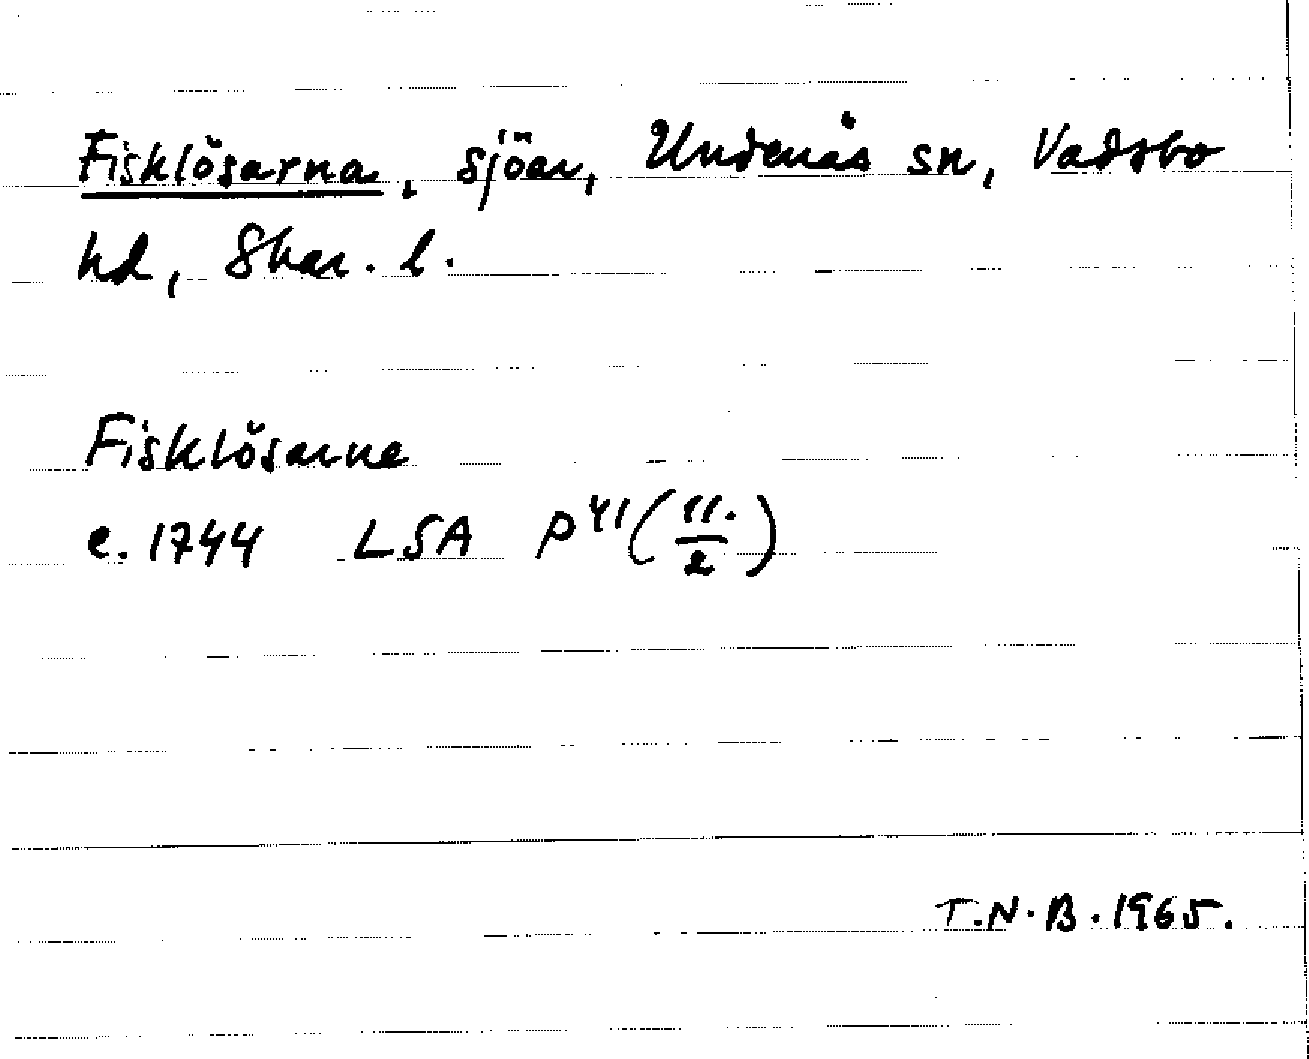 Fisklösarna, sjöar, Undenäs sn, Vadsbo
hd, Skar. l.
Fisklösarne
c. 1744 LSA P41(11./2)
T.N.B. 1965.